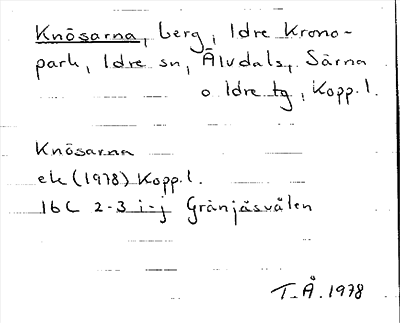 Knösarna, berg, Idre Krono-
park, Idre sn, Älvdals, Särna
o Idre tg, Kopp. l.
Knösarna
ek (1978) Kopp. l.
16C 2-3 i-j Gränjåsvålen
T.Å. 1978